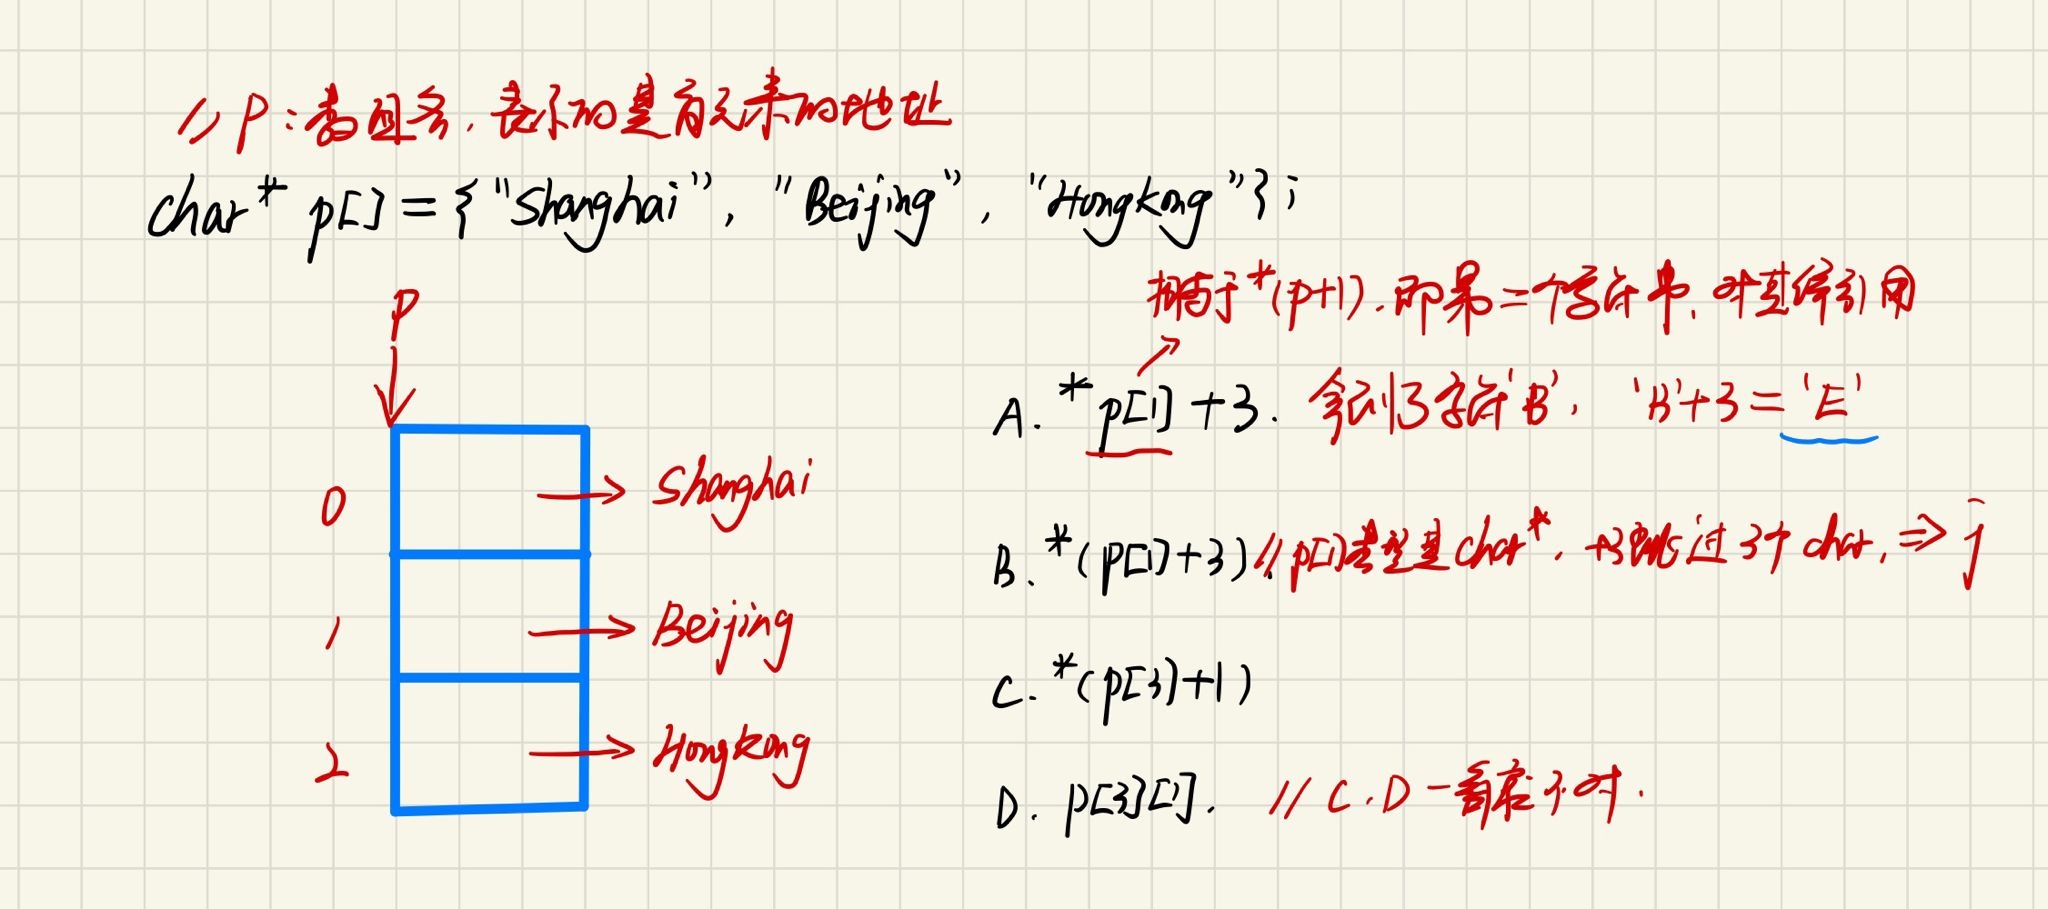 // P：数组名，表示的是首元素的地址
char* p[] = {"Shanghai", "Beijing", "Hongkong"};
P
相当于*(p+1)，即第二个字符串，对其解引用
A. *p[1]+3. 拿到了字符'B'， 'B'+3='E'
0 → Shanghai
B. *(p[1]+3) // p[1]类型是char*，+3跳过3个char，⇒ j
1 → Beijing
C. *(p[3]+1)
2 → Hongkong
D. p[3][1]. // C.D一看就不对.